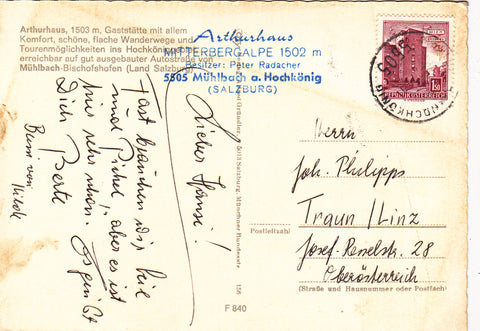 Arthurhaus, 1503 m, Gaststätte mit allem
Komfort, schöne, flache Wanderwege und
Tourenmöglichkeiten ins Hochkönig
erreichbar auf gut ausgebauter Autostraße von
Mühlbach-Bischofshofen (Land Salzburg)
Arthurhaus
MITTERBERGALPE 1502 m
Besitzer: Peter Radacher
5505 Mühlbach a. Hochkönig
(SALZBURG)
Lieber Hansi!
Fast brauchen wir hie
und Pickel, aber es ist
hier sehr schön. Es grüßt
Dich Berta
REPUBLIK ÖSTERREICH
HOCHKÖNIG
5505
5013 Salzburg, Münchner Bundesstr. 156
F 840
Herrn
Joh. Philipps
Traun/Linz
Postleitzahl
Josef-Resselstr. 28
Oberösterreich
(Straße und Hausnummer oder Postfach)